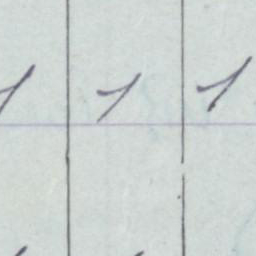 1 1 1